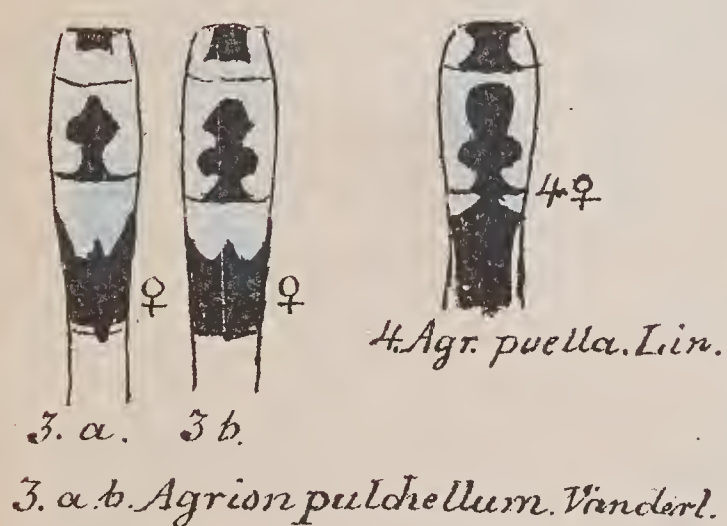 4♀
♀ ♀
4. Agr. puella. Lin.
3. a. 3 b.
3. a. b. Agrion pulchellum. Vanderl.